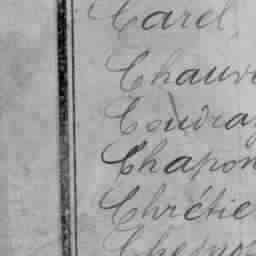 Carel
Chauvi
Coudray
Chapon
Chrétie